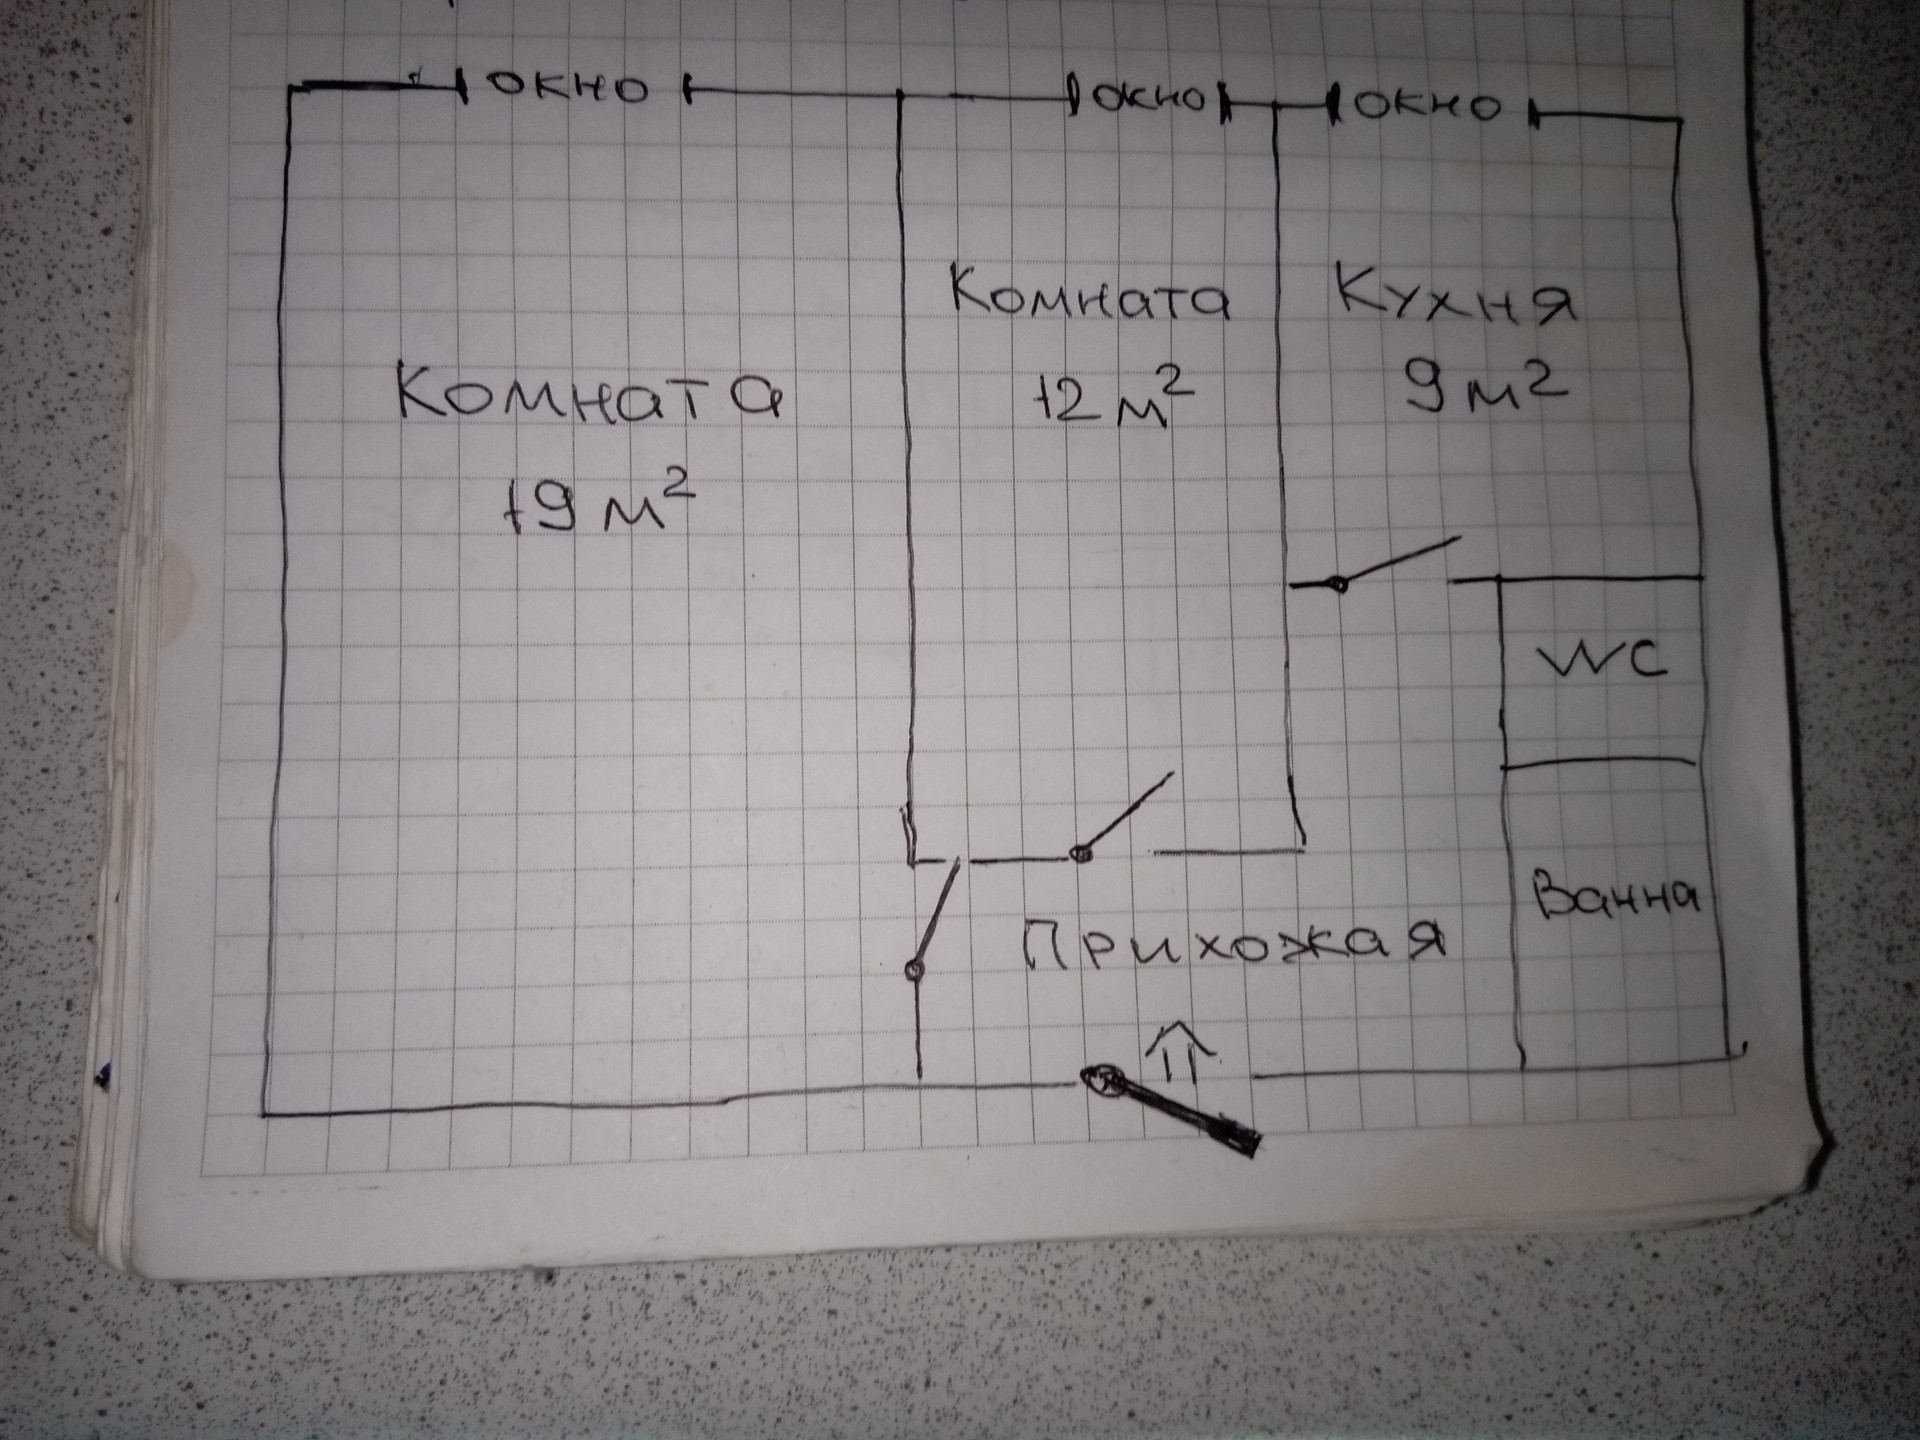 окно
окно
окно
Комната
19 м²
Комната
12 м²
Кухня
9 м²
WC
Ванна
Прихожая